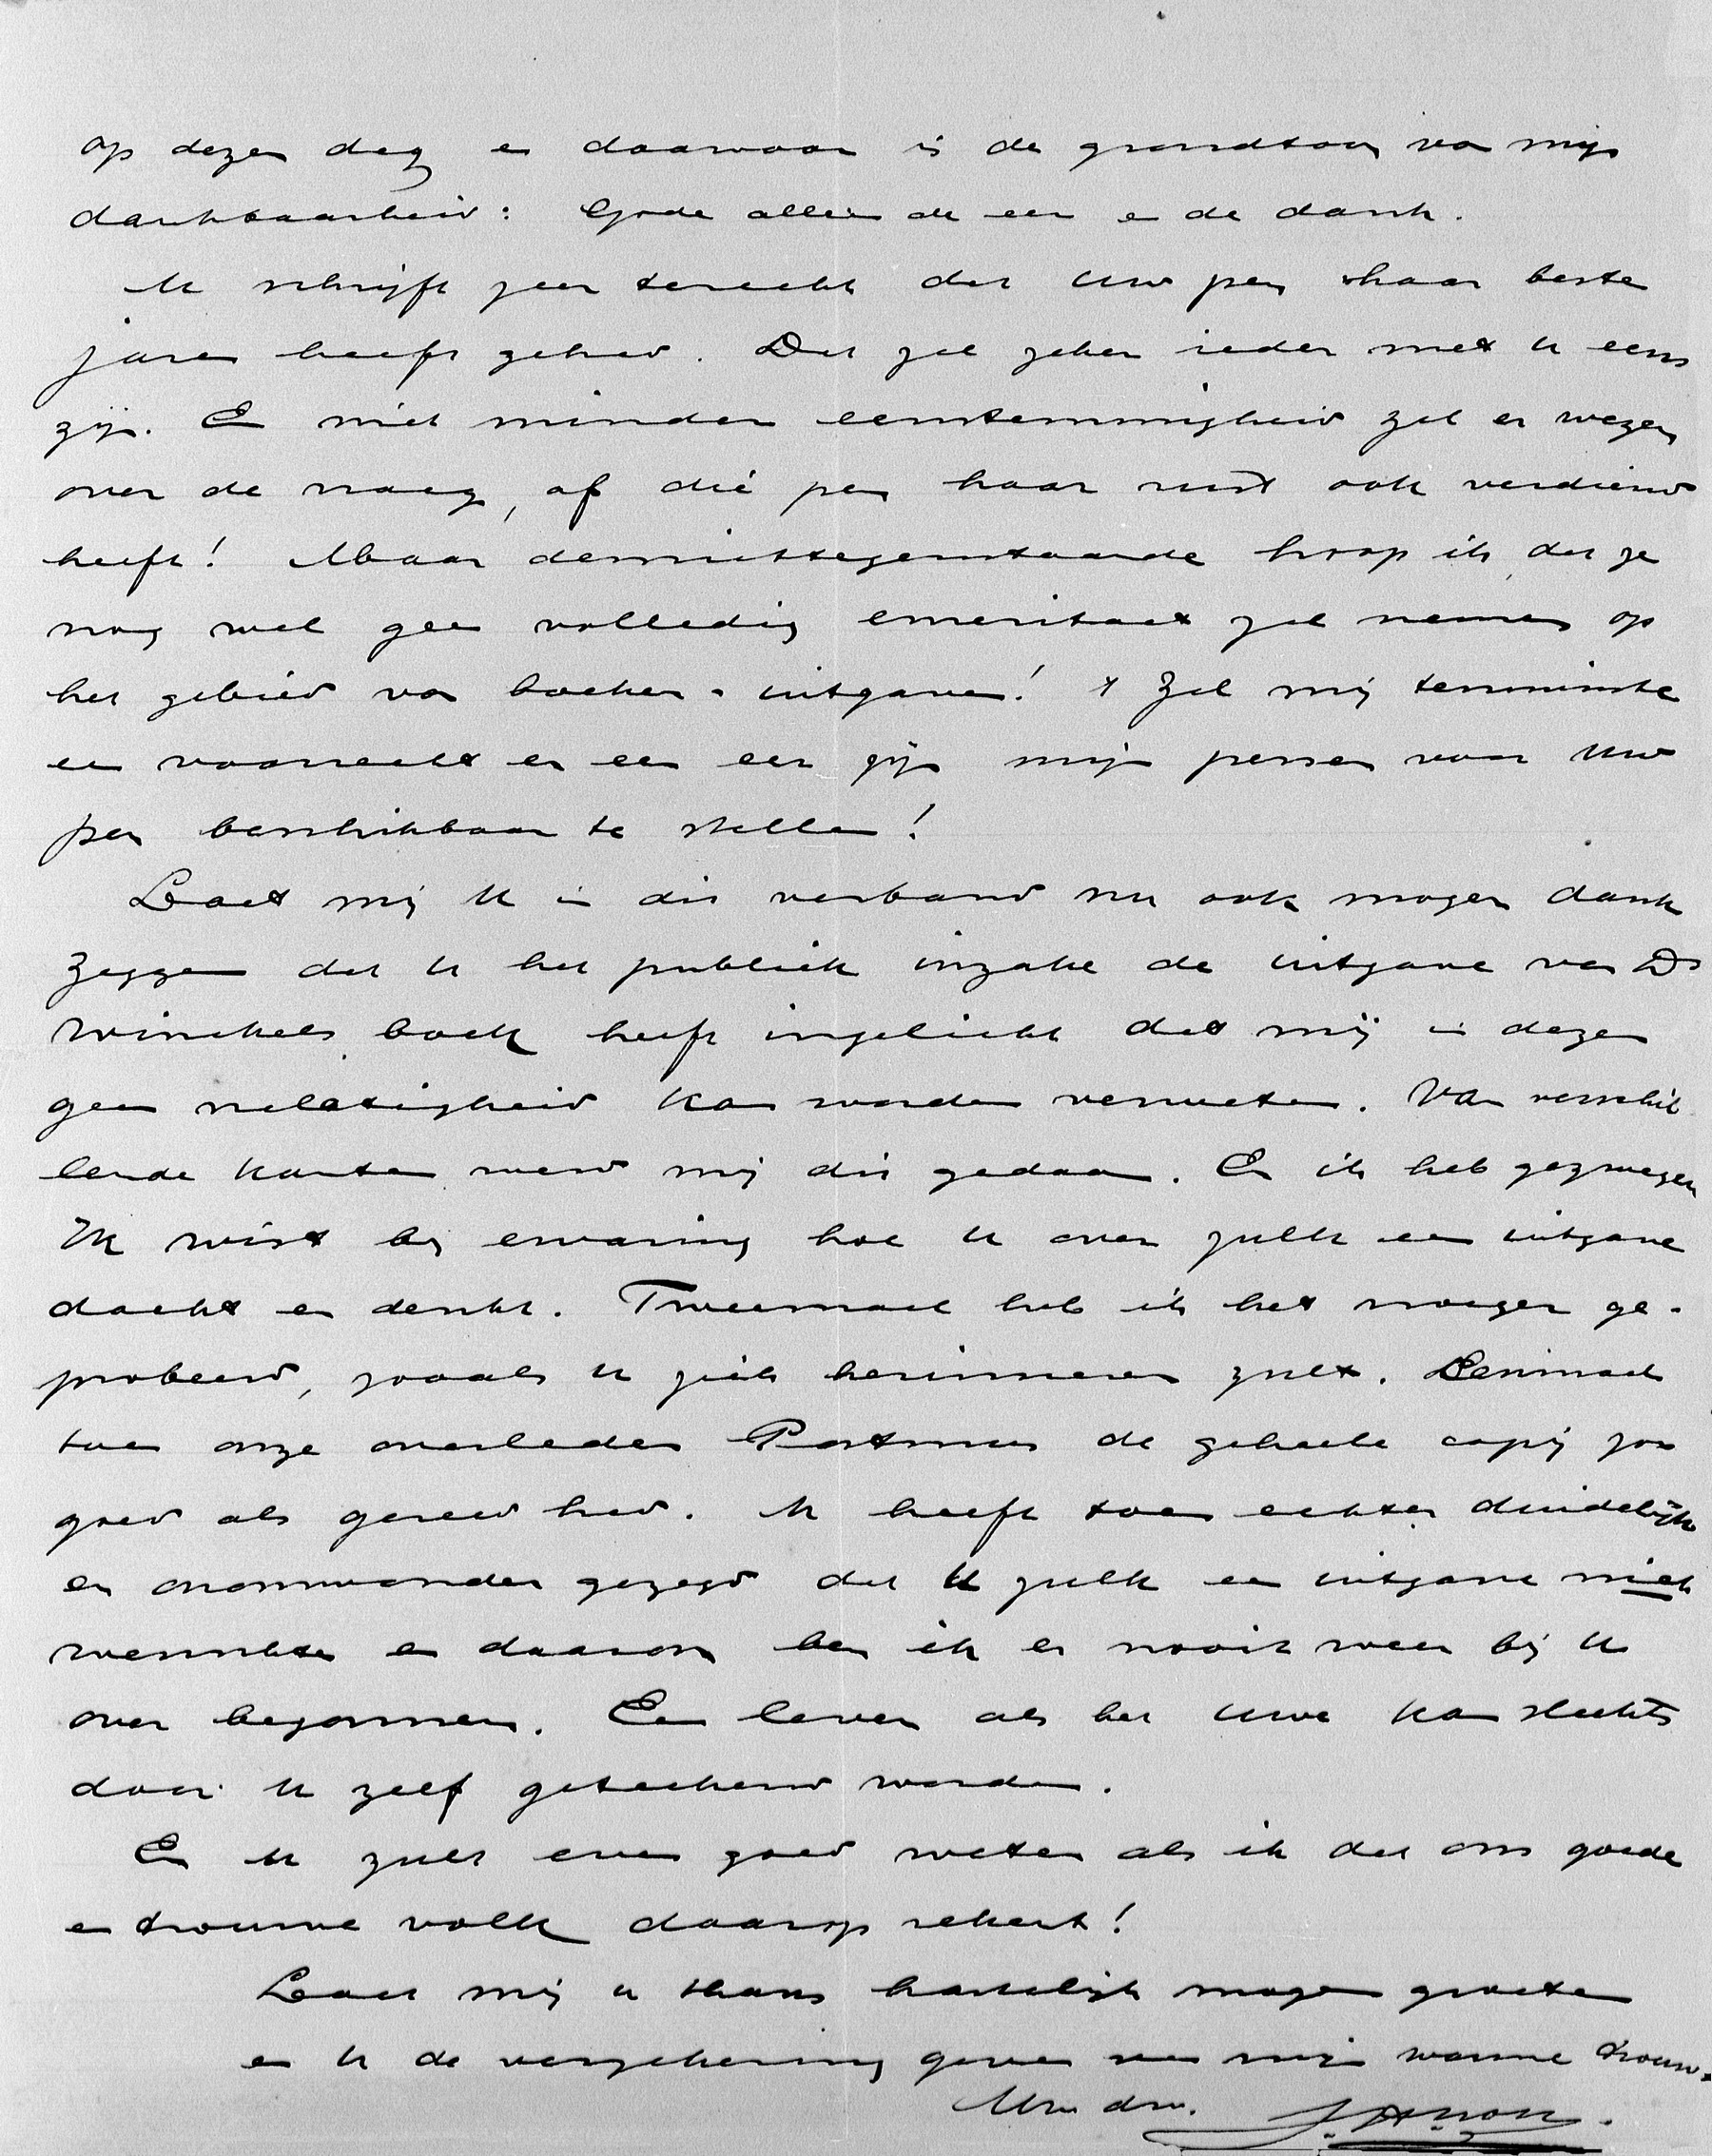 op dezen dag en daarvoor is de grondtoon van mijn
dankbaarheid: Gode alleen de eer en de dank.
U schrijft zeer terecht dat Uw pen haar beste
jaren heeft gehad. Dat zal zeker ieder met U eens
zijn. En niet minder eenstemmigheid zal er wezen
over de vraag, of dié pen haar rust ook verdiend
heeft! Maar desniettegenstaande hoop ik, dat ze
nog wel geen volledig emeritaat zal nemen op
het gebied van boeken-uitgaven! 't Zal mij tenminste
een voorrecht en een eer zijn mijn persen voor Uw
pen beschikbaar te stellen!
Laat mij U in dit verband nu ook mogen dank
zeggen dat U het publiek inzake de uitgave van Ds
Winckels boek heeft ingelicht dat mij in dezen
geen nalatigheid kan worden verweten. Van verschil
lende kanten werd mij dit gedaan. En ik heb gezwegen
Ik wist bij ervaring hoe U over zulk een uitgave
dacht en denkt. Tweemaal heb ik het vroeger ge-
probeerd, zooals U zich herinneren zult. Eenmaal
toen onze overleden Postmus de geheele copij zoo
goed als gereed had. U heeft toen echter duidelijk
en onomwonden gezegd dat U zulk een uitgave niet
wenschte en daarom ben ik er nooit weer bij U
over begonnen. Een leven als het Uwe kan slechts
door U zelf geteekend worden.
En U zult even goed weten als ik dat ons goede
en trouwe volk daarop rekent!
Laat mij U thans hartelijk mogen groeten
en U de verzekering geven van mijn warme trouw.
Uw dw. J. H. Kok.